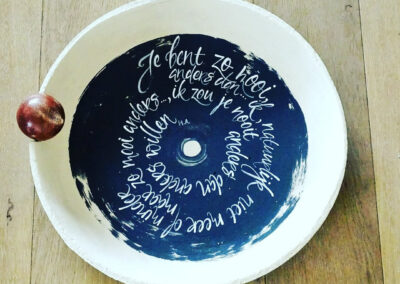 Je bent zo mooi
anders dan...
ik, natuurlijk niet meer of minder
maar
zo mooi anders..., ik zou je nooit
anders dan anders willen...